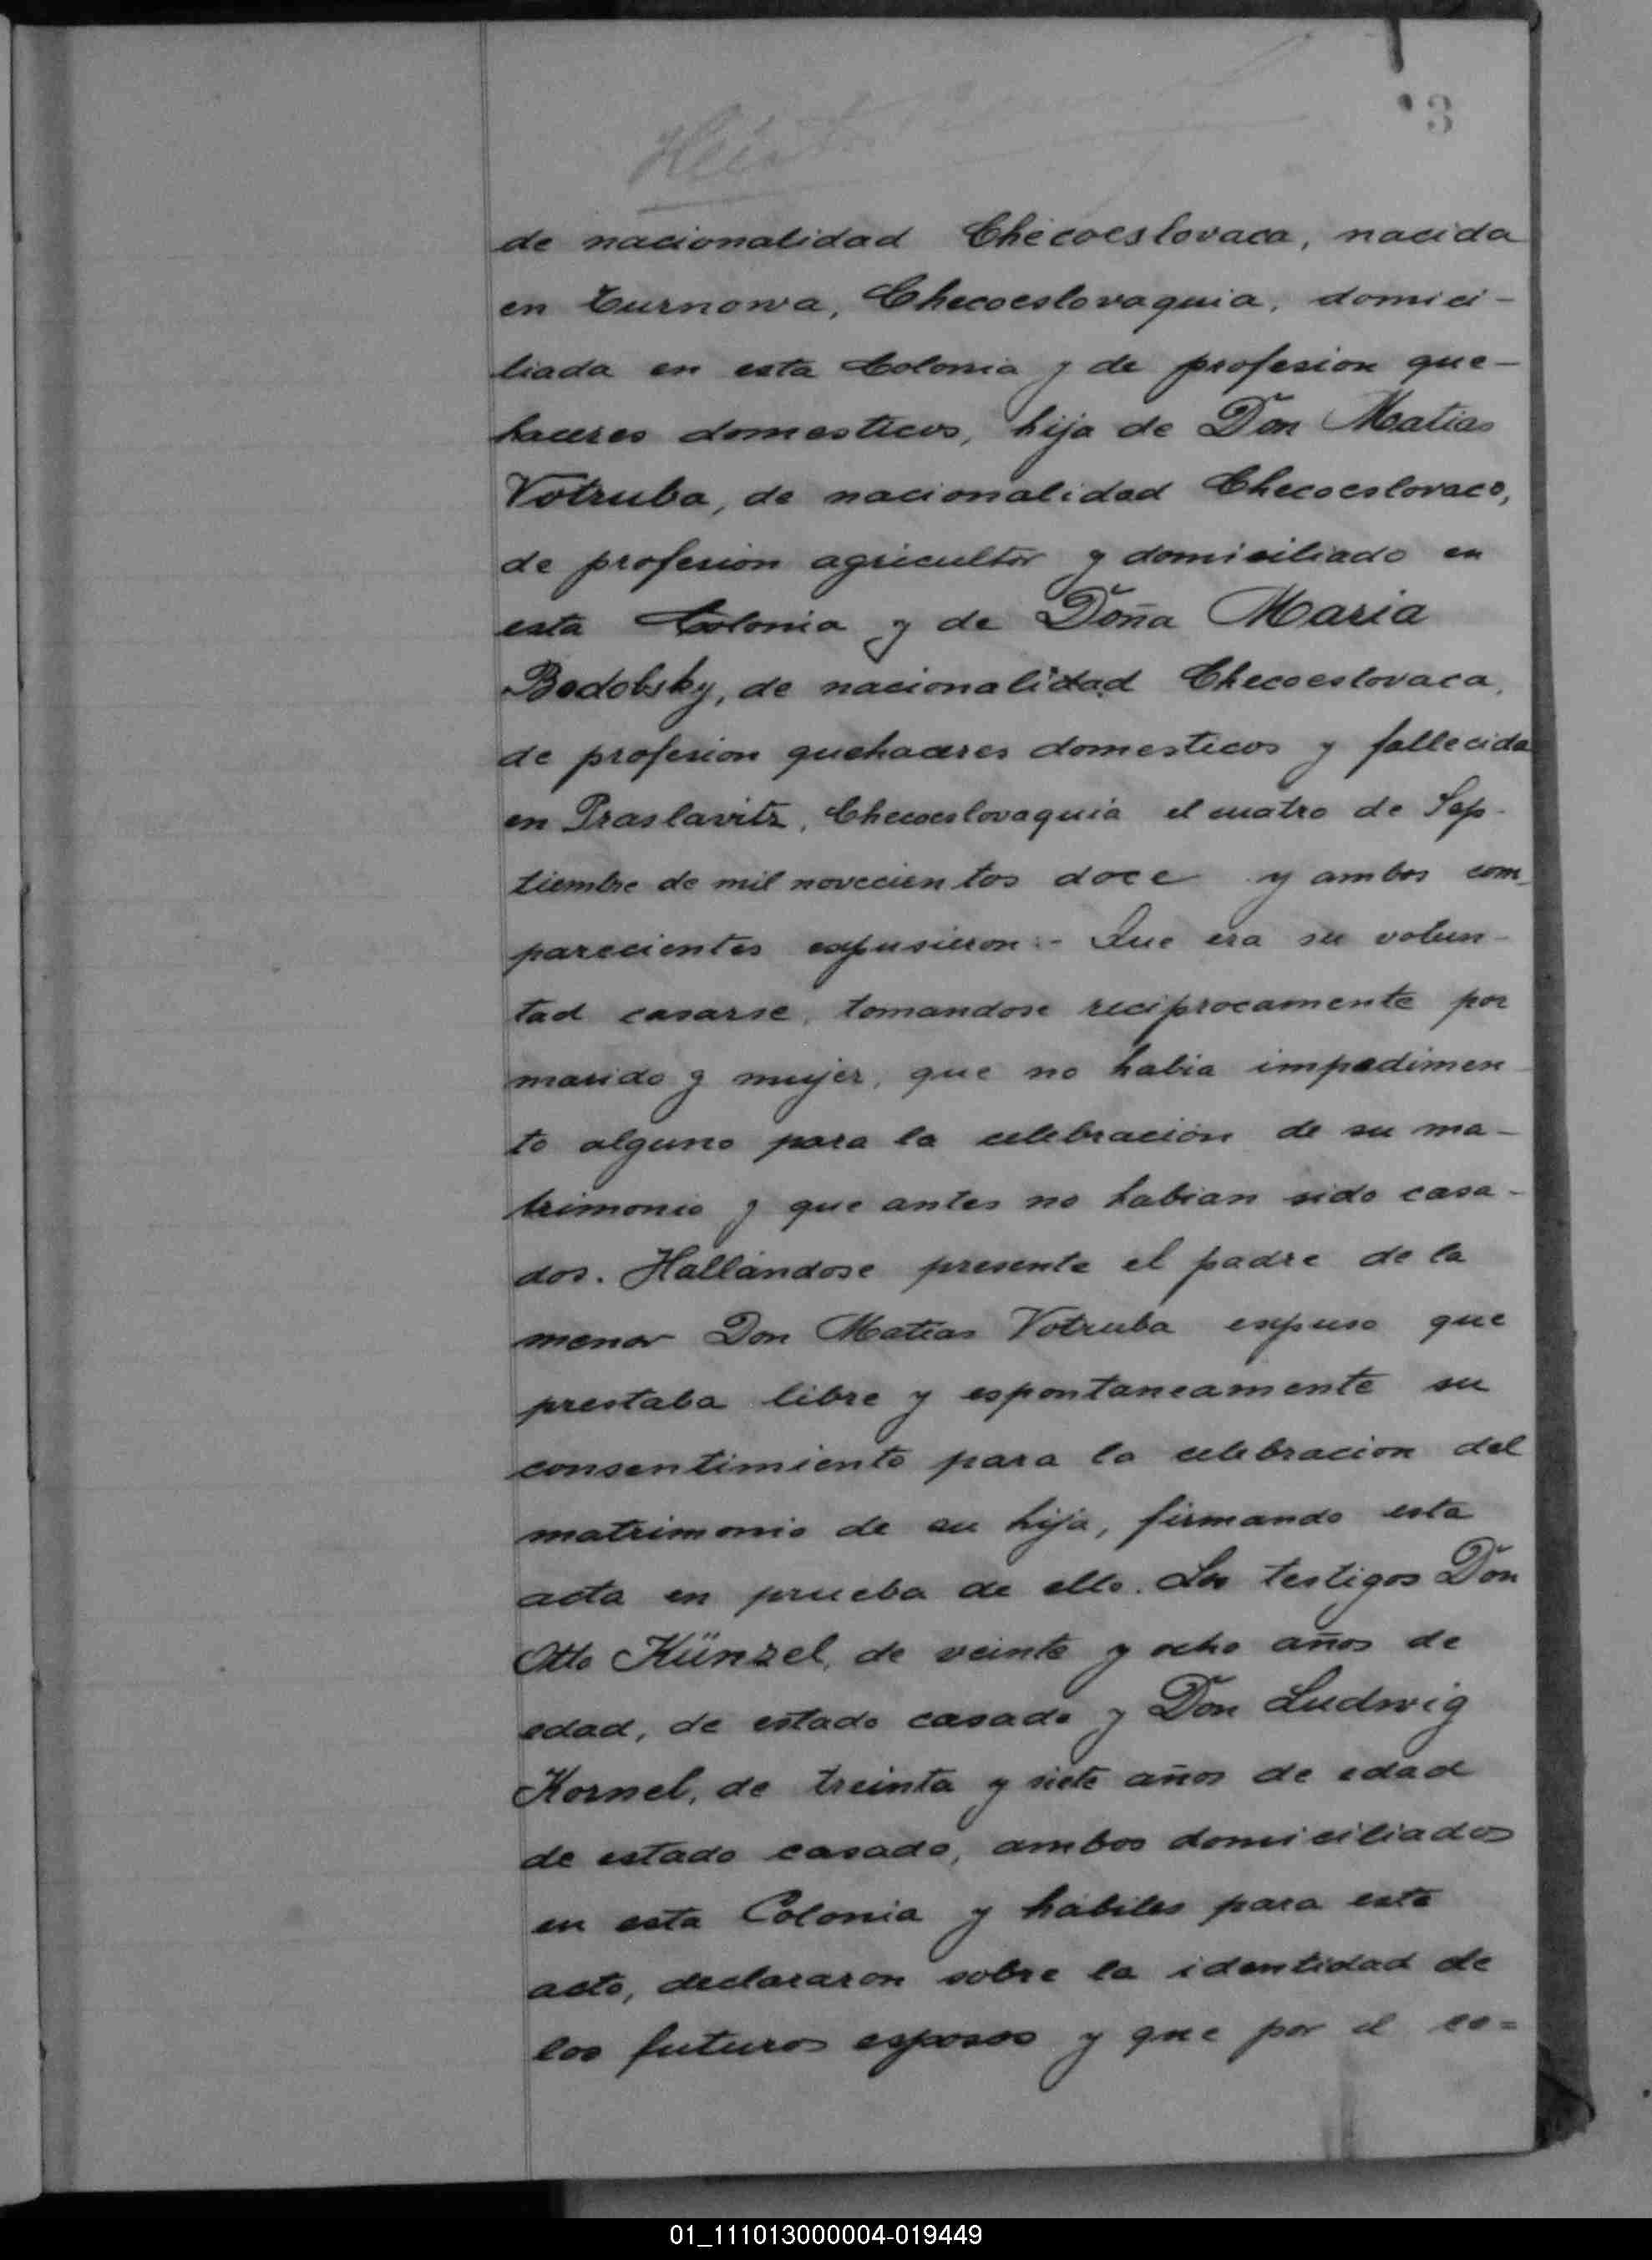 3
de nacionalidad Checoeslovaca, nacida
en Turnowa, Checoeslovaquia, domici-
liada en esta Colonia y de profesion que-
haceres domesticos, hija de Don Matias
Votruba, de nacionalidad Checoeslovaco,
de profesion agricultor y domiciliado en
esta Colonia y de Doña Maria
Bodolsky, de nacionalidad Checoeslovaca,
de profesion quehaceres domesticos y fallecida
en Praslavitz, Checoeslovaquia el cuatro de Sep-
tiembre de mil novecientos doce y ambos com-
parecientes expusieron:- Que era su volun-
tad casarse, tomandose reciprocamente por
marido y mujer, que no habia impedimen-
to alguno para la celebración de su ma-
trimonio y que antes no habian sido casa-
dos. Hallándose presente el padre de la
menor Don Matias Votruba expuso que
prestaba libre y espontaneamente su
consentimiento para la celebracion del
matrimonio de su hija, firmando esta
acta en prueba de ello. Los testigos Don
Otto Künzel, de veinte y ocho años de
edad, de estado casado y Don Ludwig
Kornel, de treinta y siete años de edad
de estado casado, ambos domiciliados
en esta Colonia y hábiles para este
acto, declararon sobre la identidad de
los futuros esposos y que por el co=
01_111013000004-019449